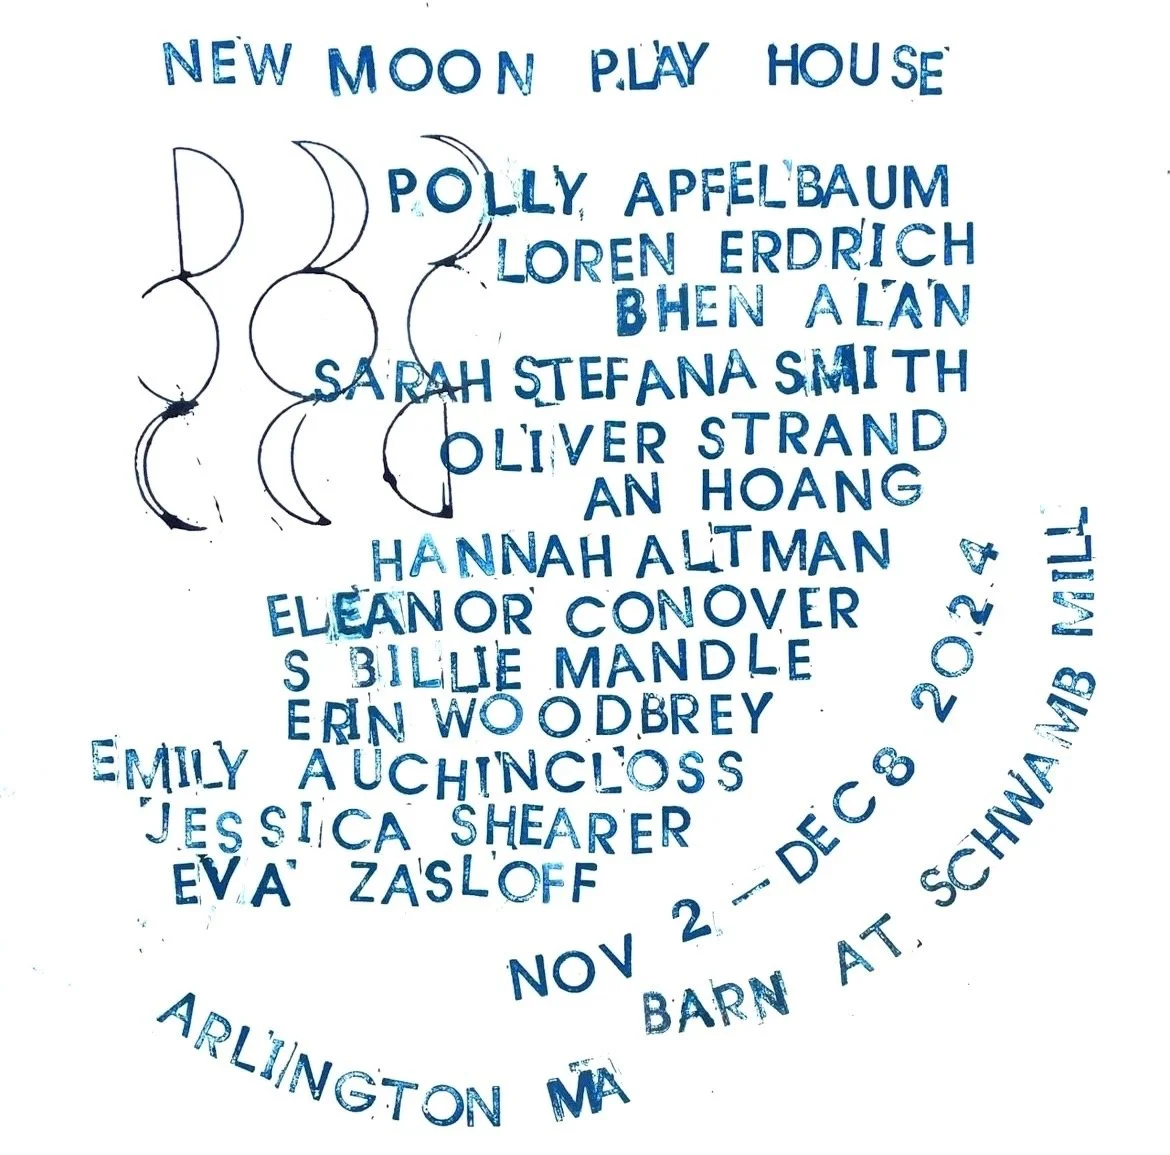 NEW MOON PLAY HOUSE
POLLY APFELBAUM
LOREN ERDRICH
BHEN ALAN
SARAH STEFANA SMITH
OLIVER STRAND
AN HOANG
HANNAH ALTMAN
ELEANOR CONOVER
S BILLIE MANDLE
ERIN WOODBREY
EMILY AUCHINCLOSS
JESSICA SHEARER
EVA ZASLOFF
NOV 2 — DEC 8 2024
BARN AT SCHWAMB MILL
ARLINGTON MA